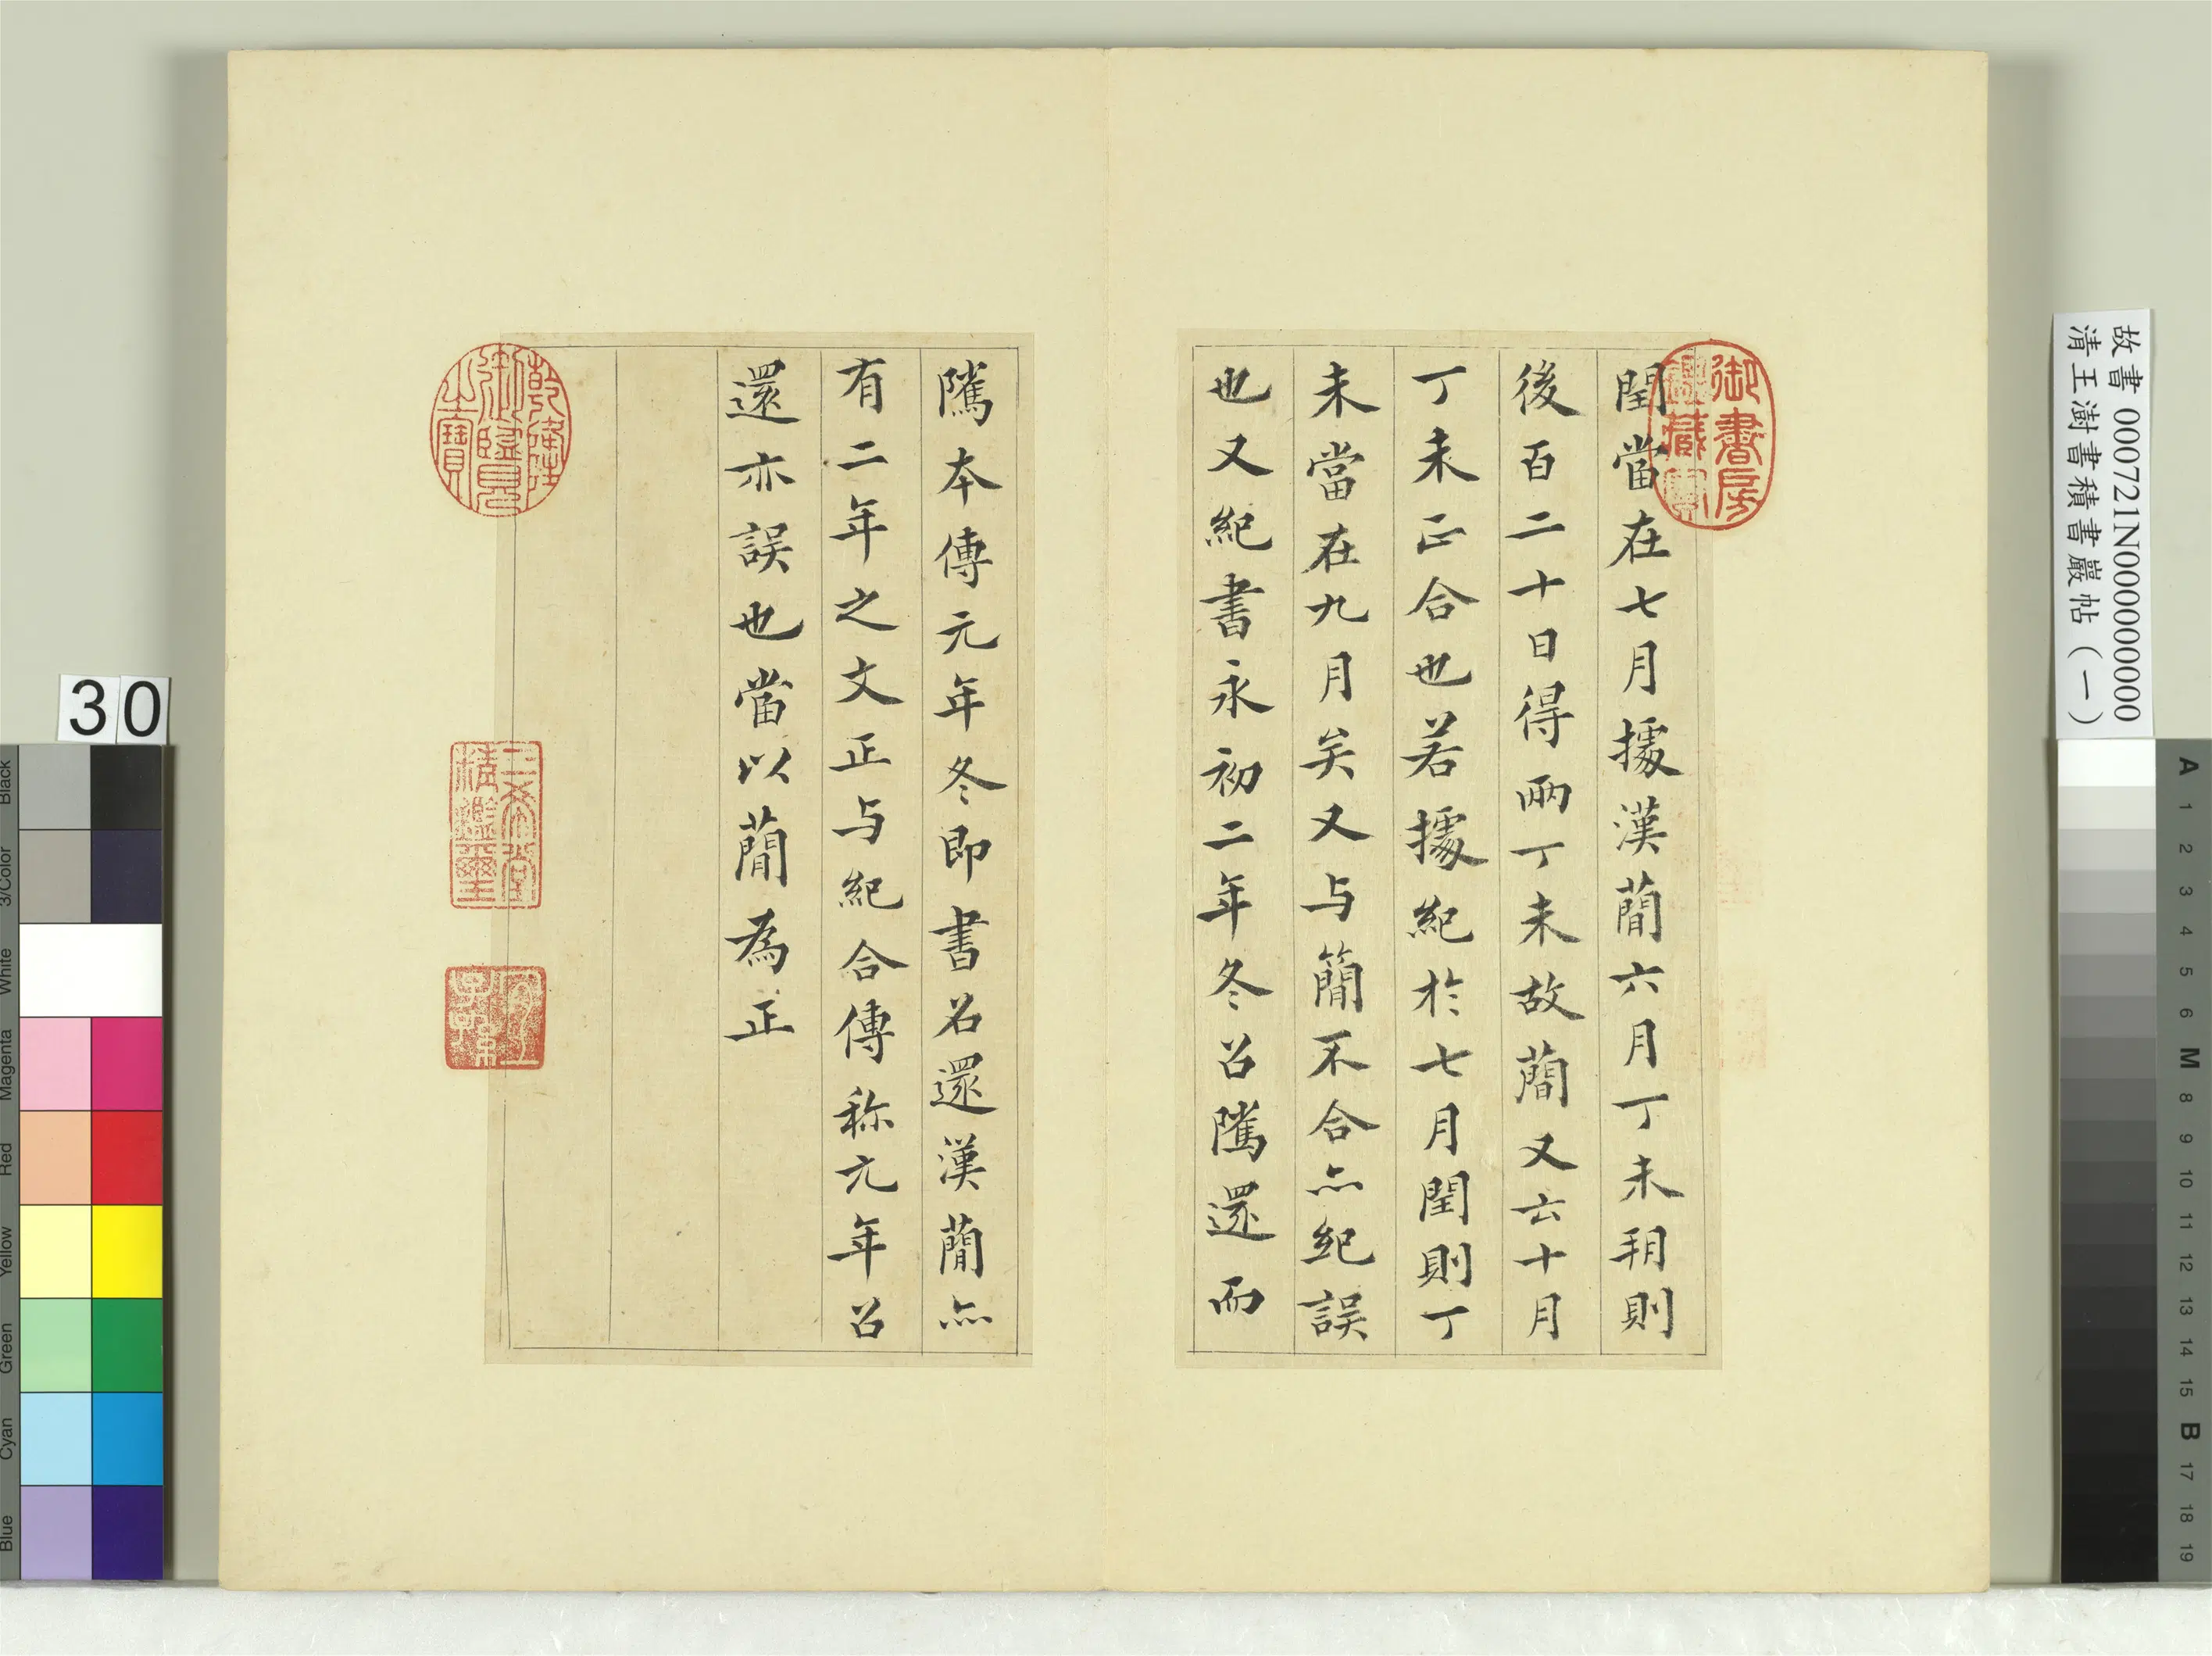 閏當在七月據漢蕳六月丁未朔則
後百二十日得兩丁未故蕳又云十月
丁未正合也若據紀於七月閏則丁
未當在九月矣又与簡不合亦紀誤
也又紀書永初二年冬召隲還而
隲本傳元年冬即書召還漢蕳亦
有二年之文正与紀合傳称元年召
還亦誤也當以蕳為正
御書房鑑藏寶
乾隆御覽之寶
三希堂精鑑璽
宜子孫
故書 000721N000000000
清王澍書積書巖帖（一）
30
Black
3/Color
White
Magenta
Red
Yellow
Green
Cyan
Blue
A
1
2
3
4
5
6
M
8
9
10
11
12
13
14
15
B
17
18
19